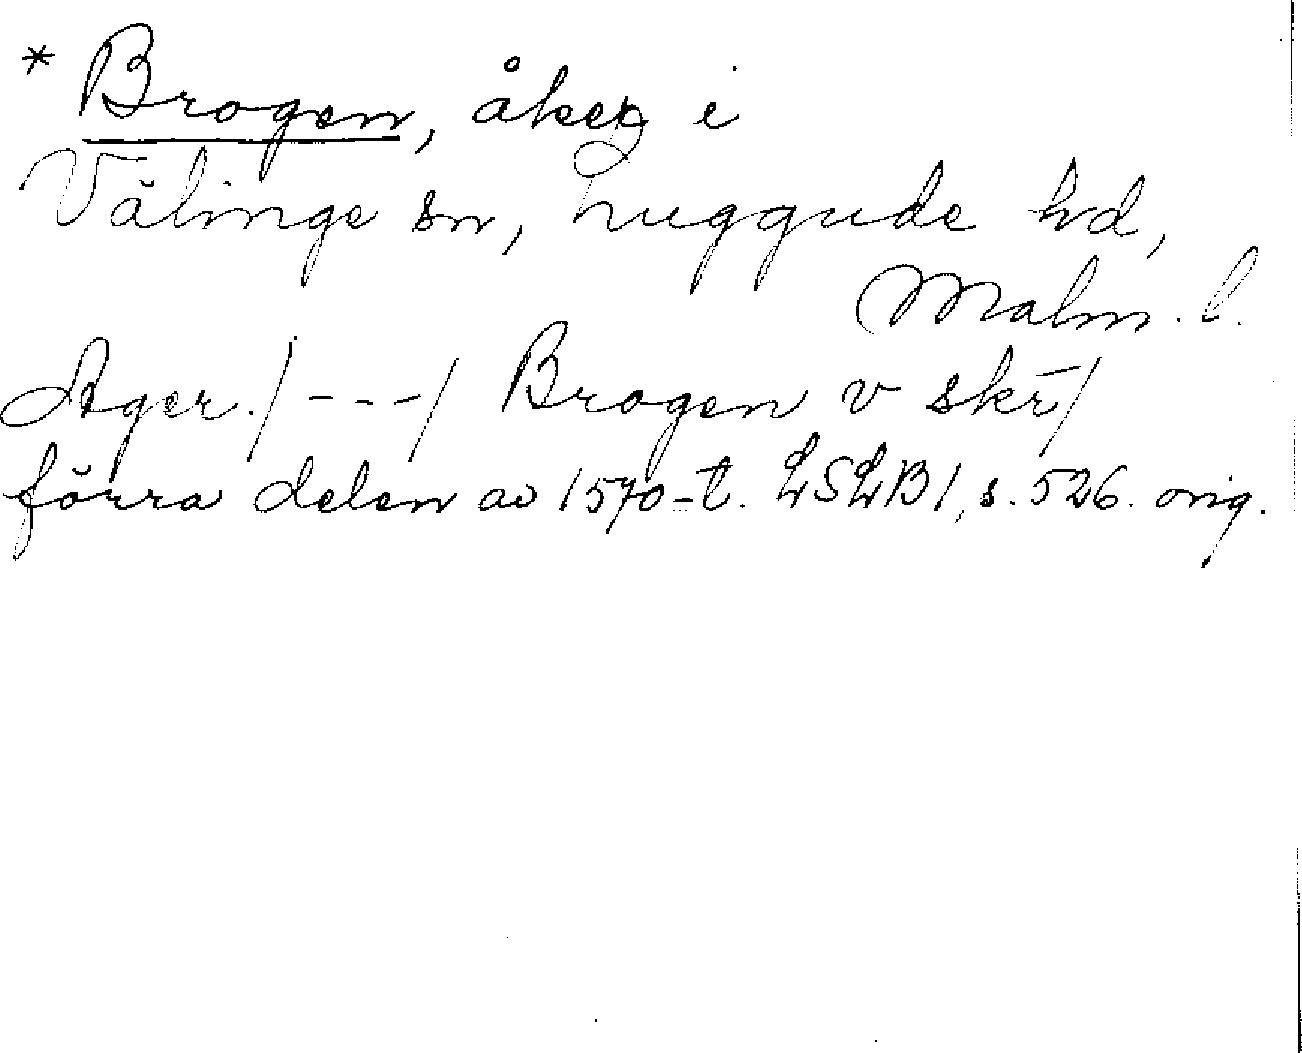 * Brogen, åker i
Välinge sn, Luggude hd,
Malm. l.
Ager. /---/ Brogen v skr/
förra delen av 1570-t. LSLB 1, s. 526. orig.